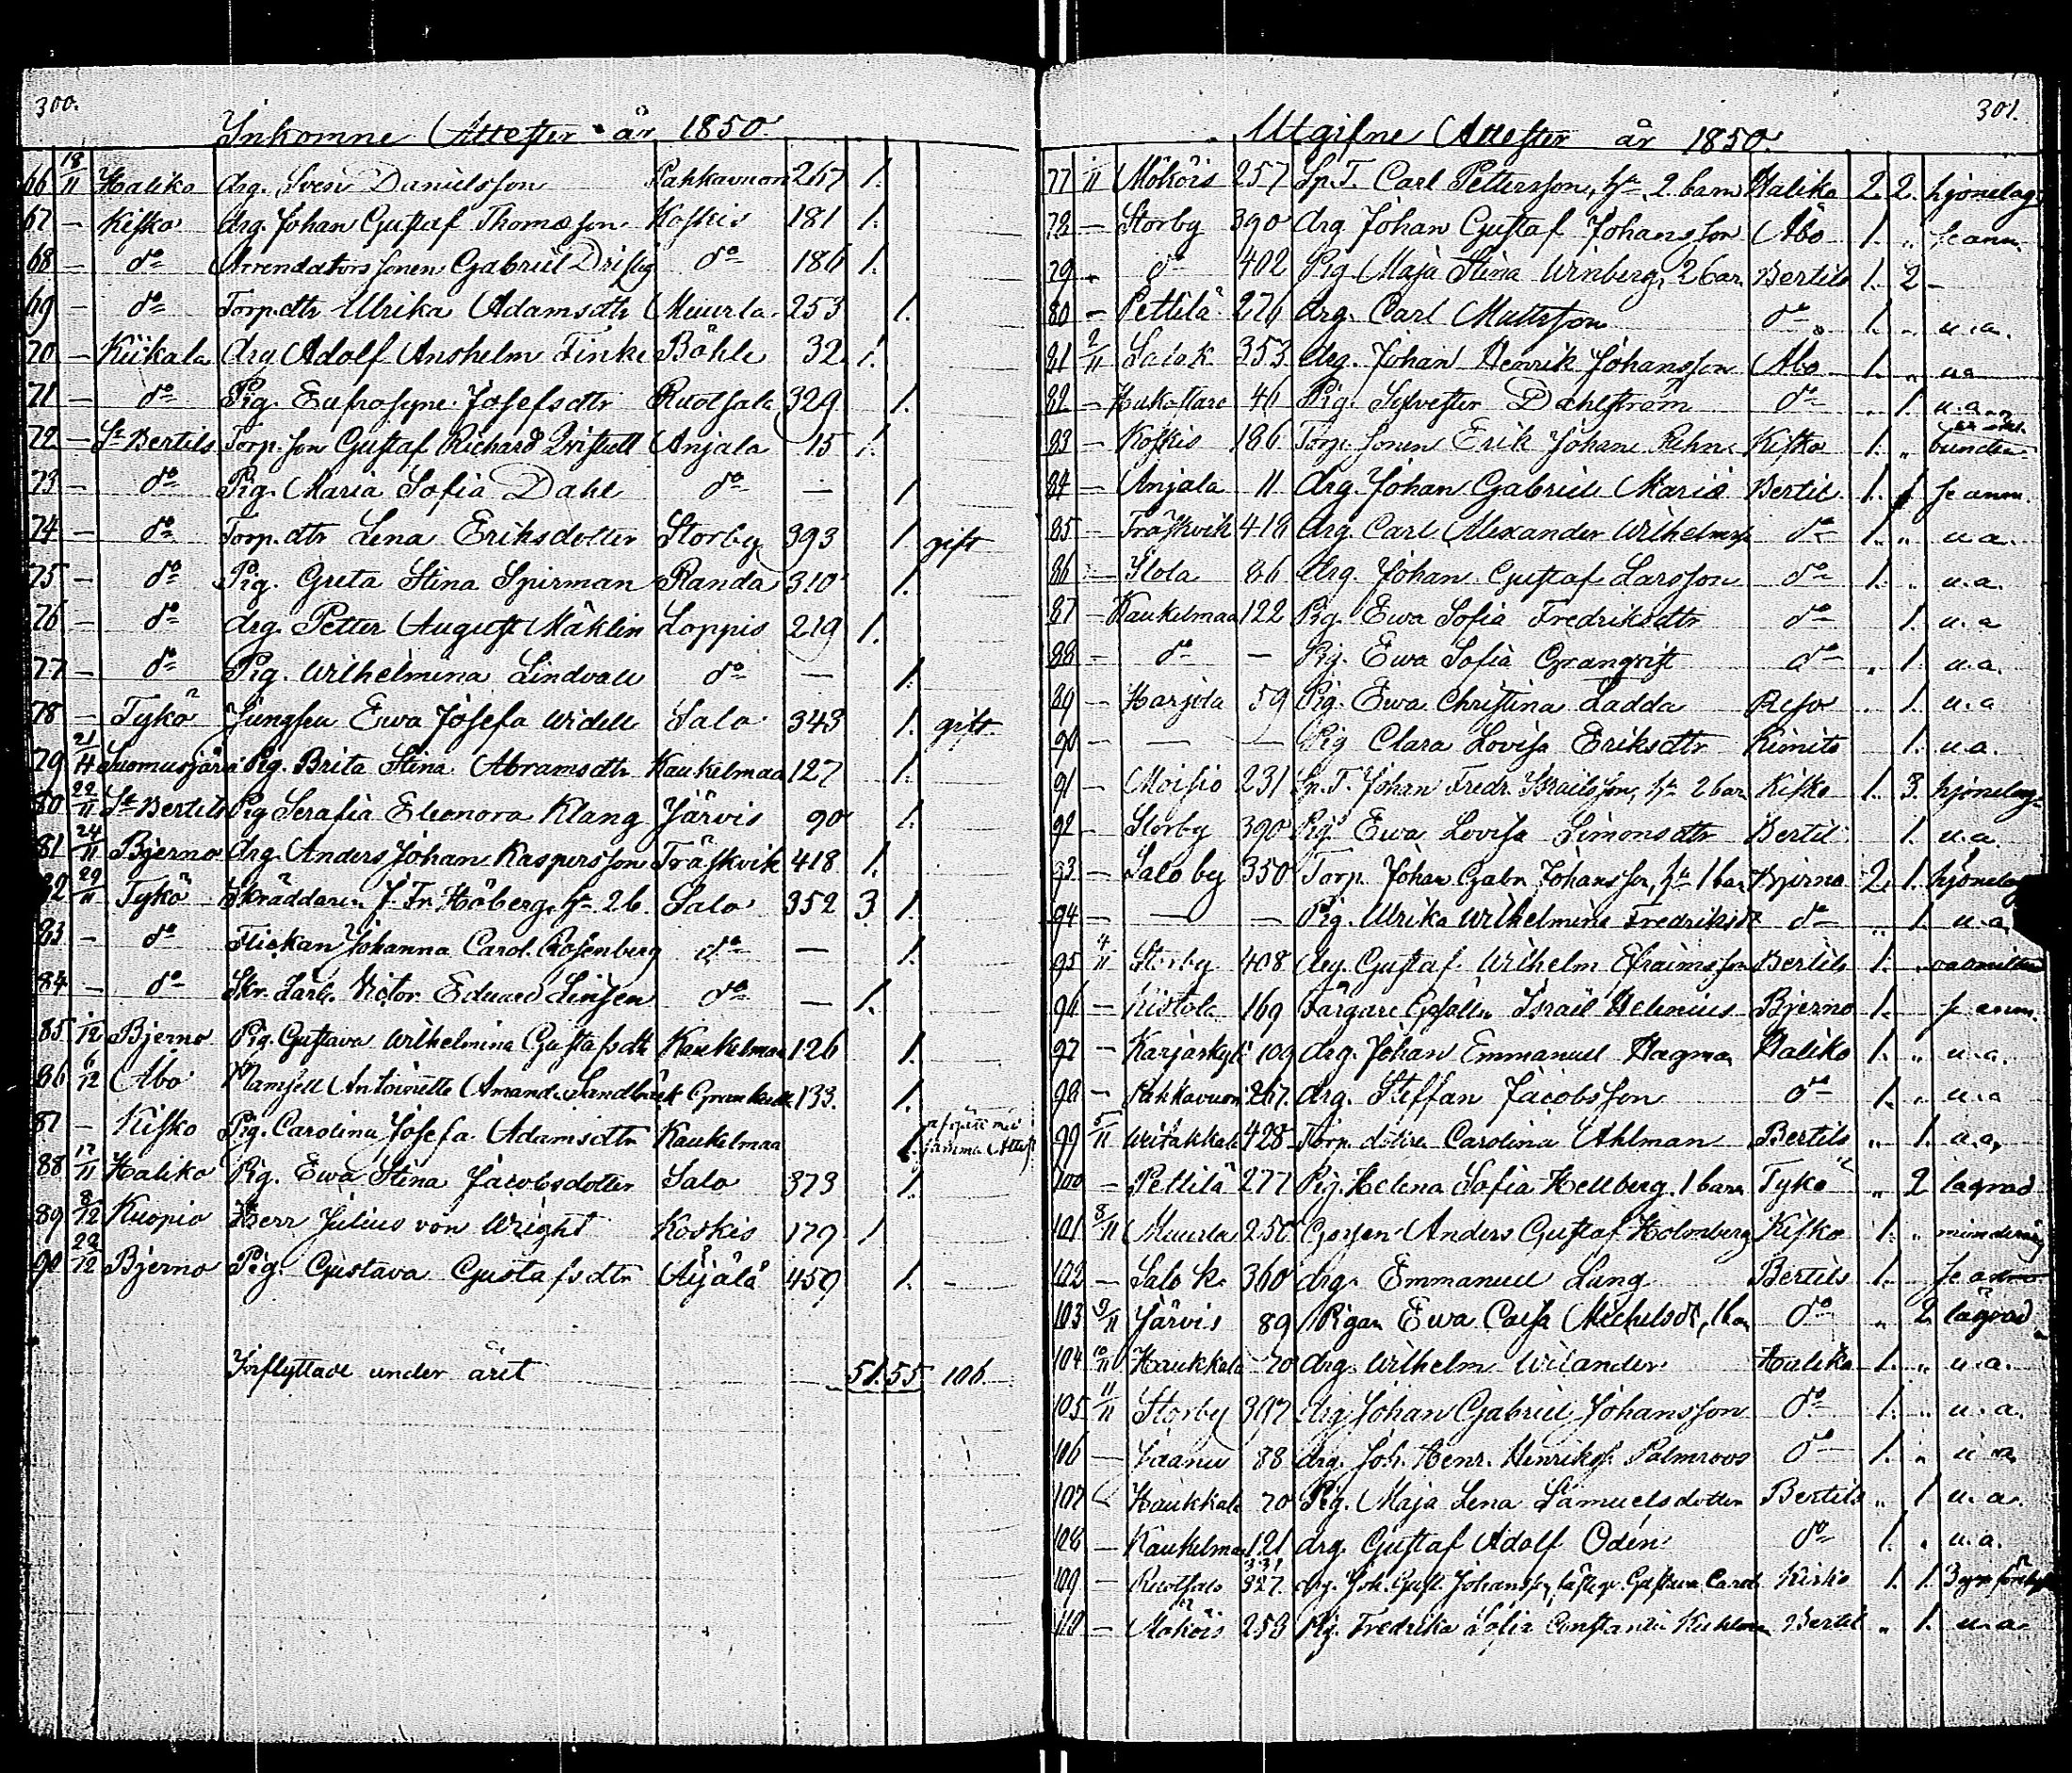 300.
Inkomne Attester år 1850.
66 18/11 Haliko drg. Sven Danielsson Pahkavuori 267 1.
67 — Kisko drg. Johan Gustaf Thomasson Koskis 181 1.
68 — do Arrendators sonen Gabriel do 186 1.
69 — do Torp.dtr Ulrika Adamsdtr Muurla 253 1.
70 — Kiikala drg Adolf Anshelm Finke Böhle 32 1.
71 — do Pig. Eufrosyne Josefsdtr Ruotsala 329 1.
72 — St Bertils Torp.son Gustaf Richard Anjala 15 1.
73 — do Pig. Maria Sofia Dahl do — 1
74 — do Torp.dtr Lena Eriksdotter Storby 393 1. gift
75 — do Pig. Greta Stina Spirman Randa 310 1.
76 — do drg. Petter August Mäklin Loppis 219 1.
77 — do Pig. Wilhelmina Lindvall do — 1.
78 — Tykö Jungfru Ewa Josefa Widell Salo 343 1. gift
79 21/11 Suomusjärvi Pig. Brita Stina Abramsdtr Kaukelmaa 127 1.
80 22/11 St Bertils Pig Serafia Eleonora Klang Järvis 90 1.
81 24/11 Bjerno drg. Anders Johan Kaspersson Träskvik 418 1.
82 29/11 Tykö Skräddaren J. Fr. Höberg, hu 2 b. Salo 352 3 1.
83 — do Flickan Johanna Carol. Rosenberg do — 1.
84 — do Skr. lärl. Victor Eduard Linsen do — 1.
85 /12 Bjerno Pig. Gustava Wilhelmina Gustafsdtr Kaukelmaa 126 1.
86 6/12 Åbo Mamsell Antoinette Amanda Sandbäck 133. 1.
87 — Kisko Pig. Carolina Josefa Adamsdtr Kaukelmaa 1. samma Attest
88 17/11 Haliko Pig. Ewa Stina Jacobsdotter Salo 373 1.
89 8/12 Kuopio Herr Julius von Wright Koskis 179 1
90 29/12 Bjerno Pig. Gustava Gustafsdtr Äijälä 459 1. -
Inflyttade under året 51. 55 106.
301.
Utgifne Attester år 1850.
77 /11 Mököis 257 Sp.T. Carl Pettersson, hu 2 barn Haliko 2. 2. hjonelag
78 — Storby 390 drg Johan Gustaf Johansson Åbo 1. „ se anm.
79 „ do 402 Pig Maja Stina Winberg, 2 bar. Bertils 1. 2 —
80 — Pettilä 276 drg. Carl Mattsson do 1. „ u.a.
81 2/11 Salo k 353 drg. Johan Henrik Johansson Åbo 1. „ ua
82 — 46 Pig. Sylvester Dahlström do „ 1. u.a.
83 — Koskis 186 Torp. sonen Erik Johan Rehn Kisko 1. „
84 — Anjala 11 drg. Johan Gabriel Maria Bertil. 1. se anm.
85 — Träskvik 418 drg. Carl Alexander Wilhelmss do 1. „ u a.
86 — Ilola 86 drg. Johan Gustaf Larsson do 1. „ u.a.
87 — Kaukelmaa 122 Pig. Ewa Sofia Fredriksdtr do 1. u. a
88 — do — Pig. Ewa Sofia Granqvist do „ 1. u.a.
89 — Harjola 59 Pig. Ewa Christina Ladda Reso „ 1. u. a
90 — — — Pig Clara Lovisa Eriksdtr Kimito 1. u.a.
91 — Moisio 231 Sp.T. Johan Fredr. Israelsson, hu 2 bar. Kisko 1. 3. hjonelag
92 — Storby 390 Pig. Ewa Lovisa Simonsdtr Bertil 1. u.a.
93 — Salo by 350 Torp. Johan Gabr. Johansson, hu 1 bar Bjerno 2. 1. hjonelag
94 — — — Pig. Ulrika Wilhelmina Fredriksdtr do „ 1. u.a.
95 4/11 Storby 408 drg. Gustaf Wilhelm Efraimsson Bertils 1.
96 — Ristola 169 Färgare Gesällen Israel Helenius Bjerno 1. se anm.
97 — Karjaskylä 109 drg. Johan Emmanuel Hagman Haliko 1. „ u.a.
98 — Pahkavuori 267. drg. Steffan Jacobsson do 1. „ u.a
99 5/11 428 Torp. dottern Carolina Ahlman Bertils „ 1. u.a.
100 — Pettilä 277 Pig. Helena Sofia Hellberg, 1 barn Tykö „ 2 lägrad
101 8/11 Muurla 250 Gossen Anders Gustaf Holmberg Kisko 1. „ minderårig
102 — Salo k. 360 drg. Emmanuel Lang Bertils 1. se anm
103 9/11 Järvis 89 Pigan Ewa Caisa Michelsdr, 1 bar do „ 2. lägrad
104 10/11 Haukkala 70 drg. Wilhelm Wilander Haliko 1. „ u.a.
105 11/11 Storby 397 drg. Johan Gabriel Johansson do 1. „ u.a.
106 — 88 drg. Joh. Henr. Henrikss. Palmroos do 1. „ u a
107 Haukkala 70 Pig. Maja Lena Samuelsdotter Bertils „ 1 u.a.
108 — Kaukelmaa 121 drg. Gustaf Adolf Odén do 1. „ u.a.
109 — Ruotsala 331 327. drg. Joh. Gust. Johansson, Gustava Carol. Kisko 1. 1.
110 — Mököis 258 Pig. Fredrika Sofia Constantia Bertil „ 1. u.a.